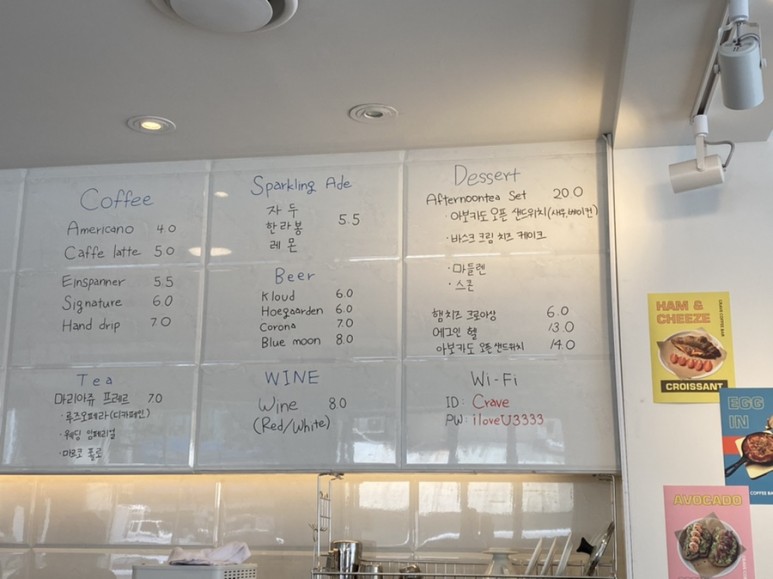 Coffee
Americano 4.0
Caffe latte 5.0
Einspanner 5.5
Signature 6.0
Hand drip 7.0
Tea
마리아쥬 프레르 7.0
·루즈오페라(디카페인)
·웨딩 임페리얼
·마르코 폴로
Sparkling Ade
자두
한라봉 5.5
레몬
Beer
Kloud 6.0
Hoegaarden 6.0
Corona 7.0
Blue moon 8.0
WINE
Wine 8.0
(Red/White)
Dessert
Afternoontea Set 20.0
·아보카도 오픈 샌드위치(새우,베이컨)
·바스크 크림 치즈 케이크
·마들렌
·스콘
햄치즈 크로아상 6.0
에그인 헬 13.0
아보카도 오픈 샌드위치 14.0
Wi-Fi
ID: Crave
PW: iloveU3333
HAM &
CHEEZE
CRAVE COFFEE BAR
CROISSANT
EGG
IN
COFFEE BA
AVOCADO